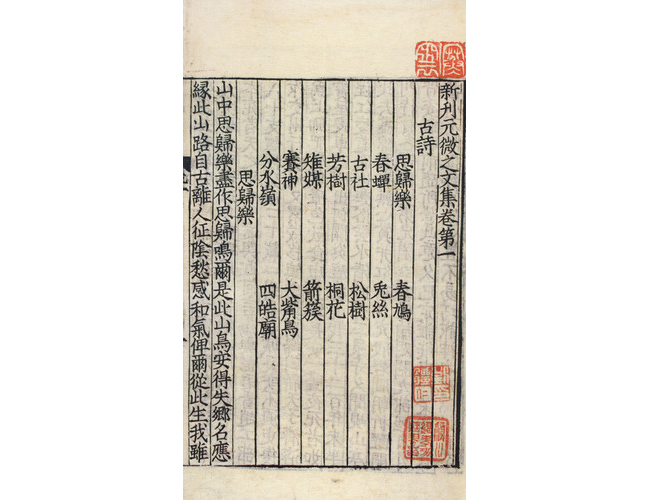 新刋元微之文集卷第一
古詩
思歸樂 春鳩
春蟬 兎絲
古社 松樹
芳樹 桐花
雉媒 箭鏃
賽神 大觜烏
分水嶺 四皓廟
思歸樂
山中思歸樂盡作思歸鳴爾是此山鳥安得失鄉名應
緣此山路自古離人征陰愁感和氣俾爾從此生我雖